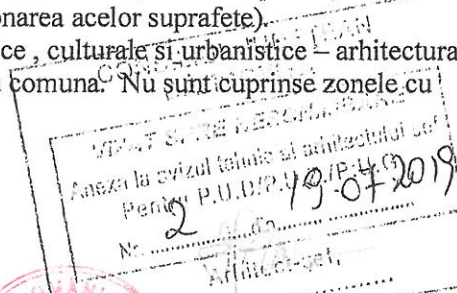 onarea acelor suprafete).
ce , culturale si urbanistice – arhitectura
comuna. Nu sunt cuprinse zonele cu
VIZAT SPRE NESCHIMBARE
Anexa la avizul tehnic al arhitectului șef
Pentru P.U.D./P.U.Z./P.U.G.
Nr. 2 din 19.07.2019
Arhitect-șef,
ROMÂNIA